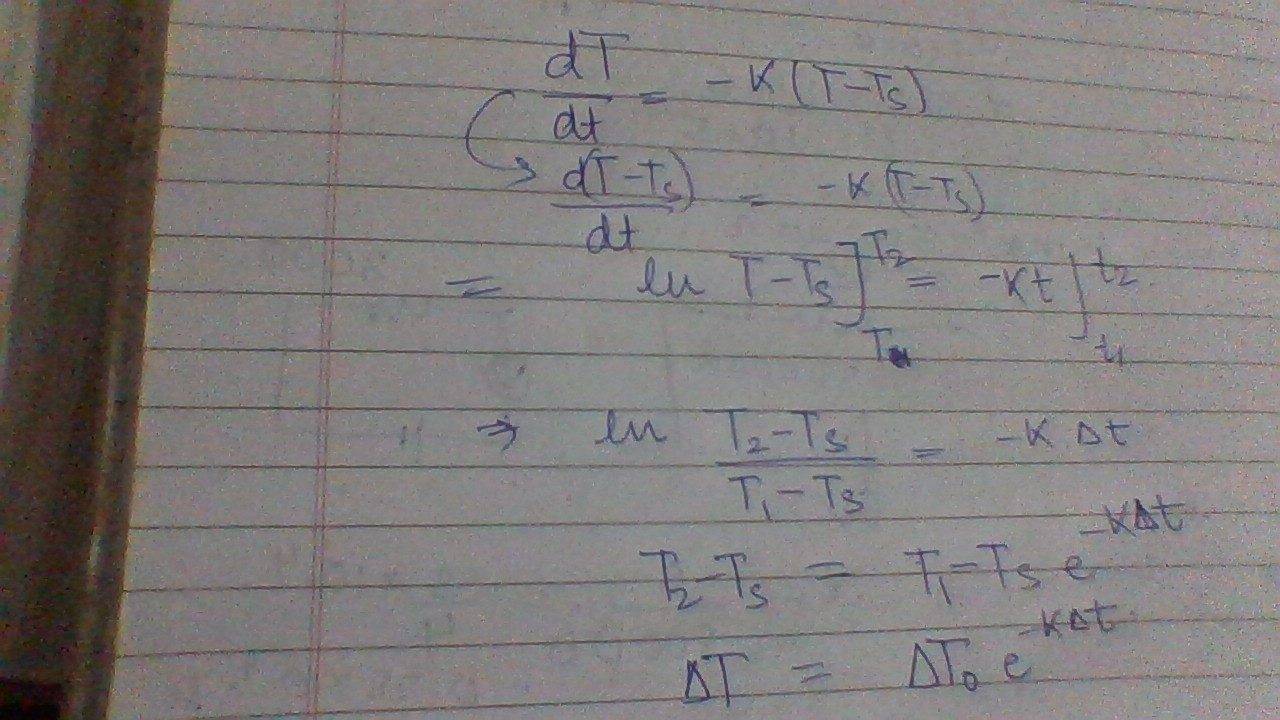 dT/dt = -K(T-Ts)
d(T-Ts)/dt = -K(T-Ts)
= ln T-Ts]T2 = -Kt]t2 t1
⇒ ln T2-Ts/T1-Ts = -K Δt
T2-Ts = T1-Ts e^-KΔt
ΔT = ΔT0 e^-KΔt